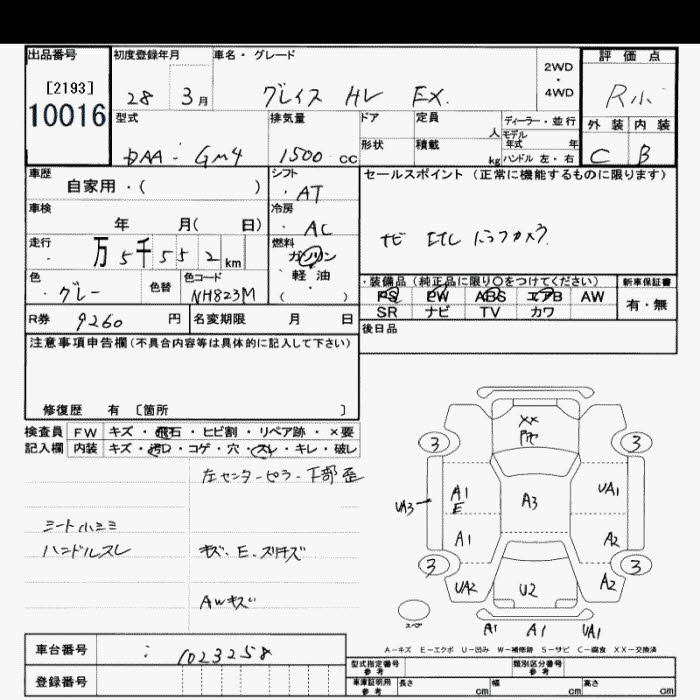 出品番号 初度登録年月 車名・グレード 評価点
[2193] 28 3月 グレイス HV EX. 2WD・4WD R小
10016 型式 排気量 ドア 定員 人 ディーラー・並行 外装 内装
DAA - GM4 1500 cc 形状 積載 kg モデル年式 年 ハンドル 左・右 C B
車歴 シフト セールスポイント (正常に機能するものに限ります)
自家用・( ) AT
車検 冷房 ナビ ETC
年 月( 日) AC
走行 燃料
万 5千552 km ガソリン
軽・油
( )
色 色替 色コード ・装備品 (純正品に限り○をつけてください) 新車保証書
グレー NH823M PS PW ABS エアB AW 有・無
SR ナビ TV カワ
R券 9260 円 名変期限 月 日 後日品
注意事項申告欄(不具合内容等は具体的に記入して下さい)
修復歴 有 〔箇所 〕
検査員 FW キズ・飛石・ヒビ割・リペア跡・×要
記入欄 内装 キズ・汚れ・コゲ・穴・スレ・キレ・破レ
左センターピラー下部歪
ハンドルスレ キズ・E・スリキズ
AWキズ
XX
3 3
UA3 A1 E A3 UA1
A1 A2
3 3
UA2 U2 A2
スペア A1 A1 UA1
A-キズ E-エクボ U-凹み W-補修跡 S-サビ C-腐食 XX-交換済
車台番号 : 1023258
登録番号 型式指定番号 参考 類別区分番号 参考
車庫証明用 参考 長さ cm 幅 cm 高さ cm